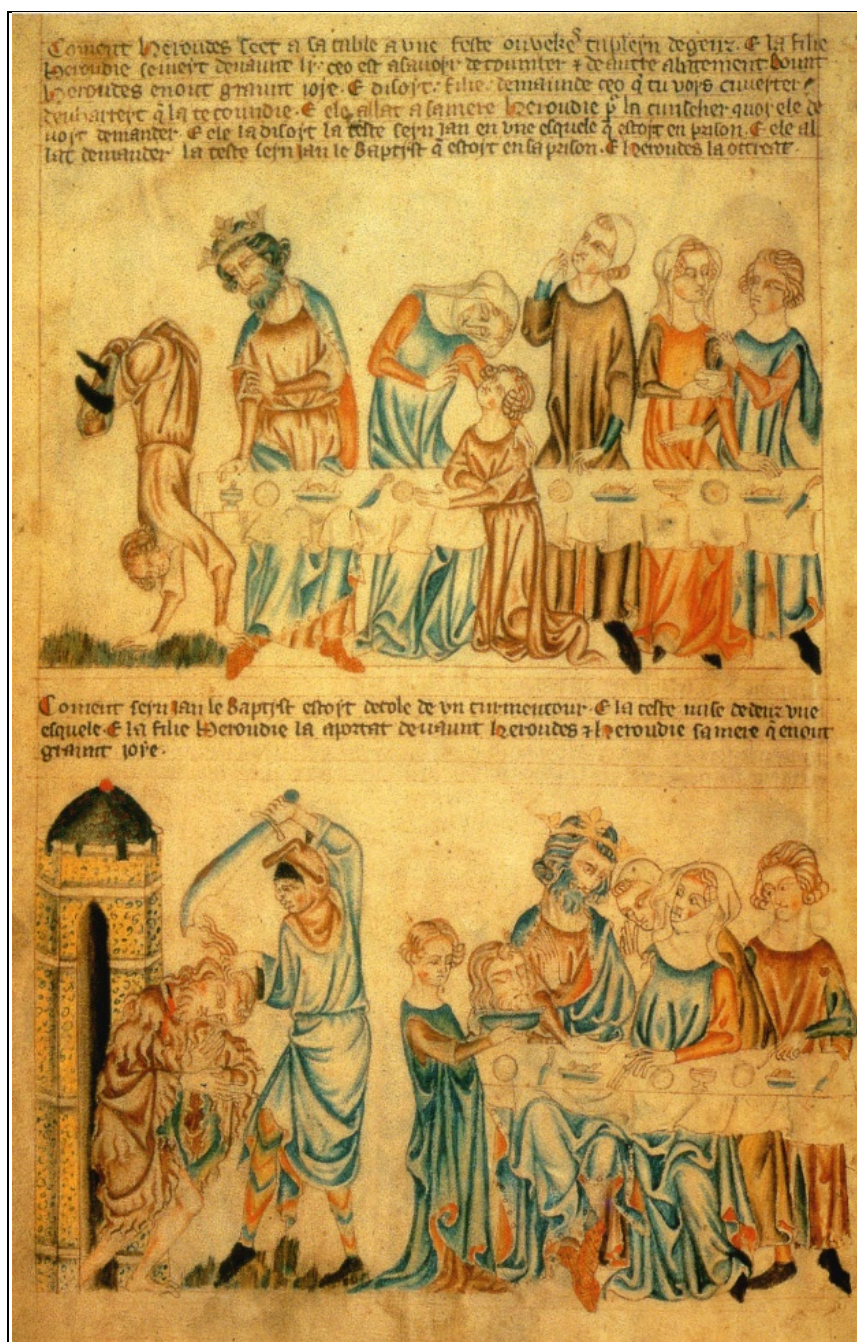 Coment Heroudes seet a sa table a une feste ouveke tuplein de genz. E la filie
Heroudie devaunt ly ceo est asavoir de toumber & de autre abatement Dount
Heroudes enout graunt joje. E disoit. filie. demaunde ceo q̄ tu vors
q̄ la te E ele allat a samere Heroudie p̄ la cunseiler quor ele de
voit demander. E ele la disoit la teste seyn Jan en vne esquele q̄ estoit en prison. E ele al
lat demander la teste seyn Jan le Baptist q̄ estoit en sa prison. E Heroudes la ottreat.
Coment seyn Jan le Baptist estoit decole de vn turmentour. E la teste mise dedenz vne
esquele. E la filie Heroudie la aportat devaunt Heroudes & Heroudie sa mere q̄ enout
graunt joye.